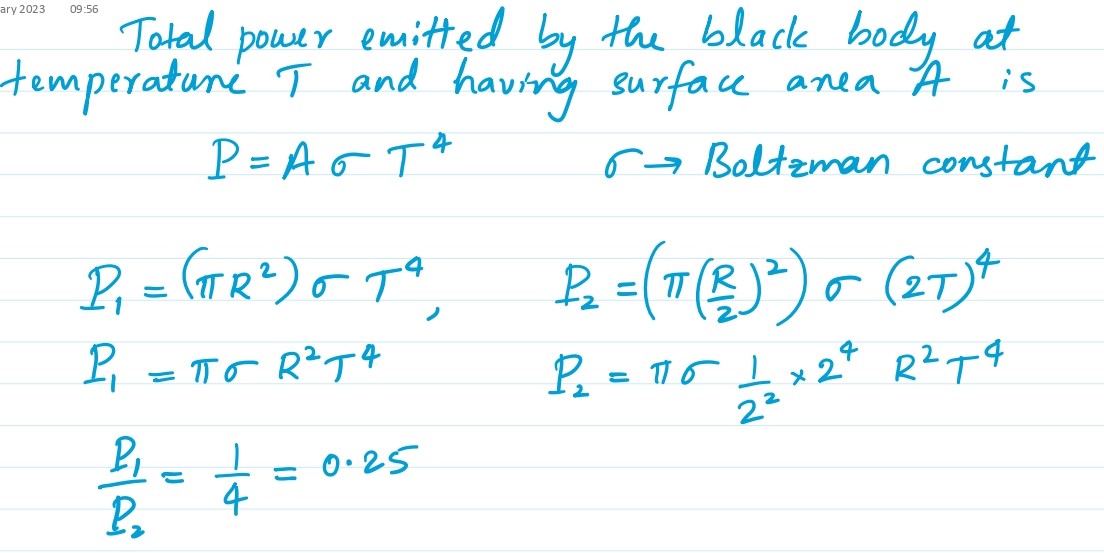 ary 2023 09:56
Total power emitted by the black body at
temperature T and having surface area A is
P = A σ T⁴ σ → Boltzman constant
P₁ = (πR²) σ T⁴, P₂ = (π(R/2)²) σ (2T)⁴
P₁ = πσ R²T⁴ P₂ = πσ 1/2² × 2⁴ R²T⁴
P₁/P₂ = 1/4 = 0.25